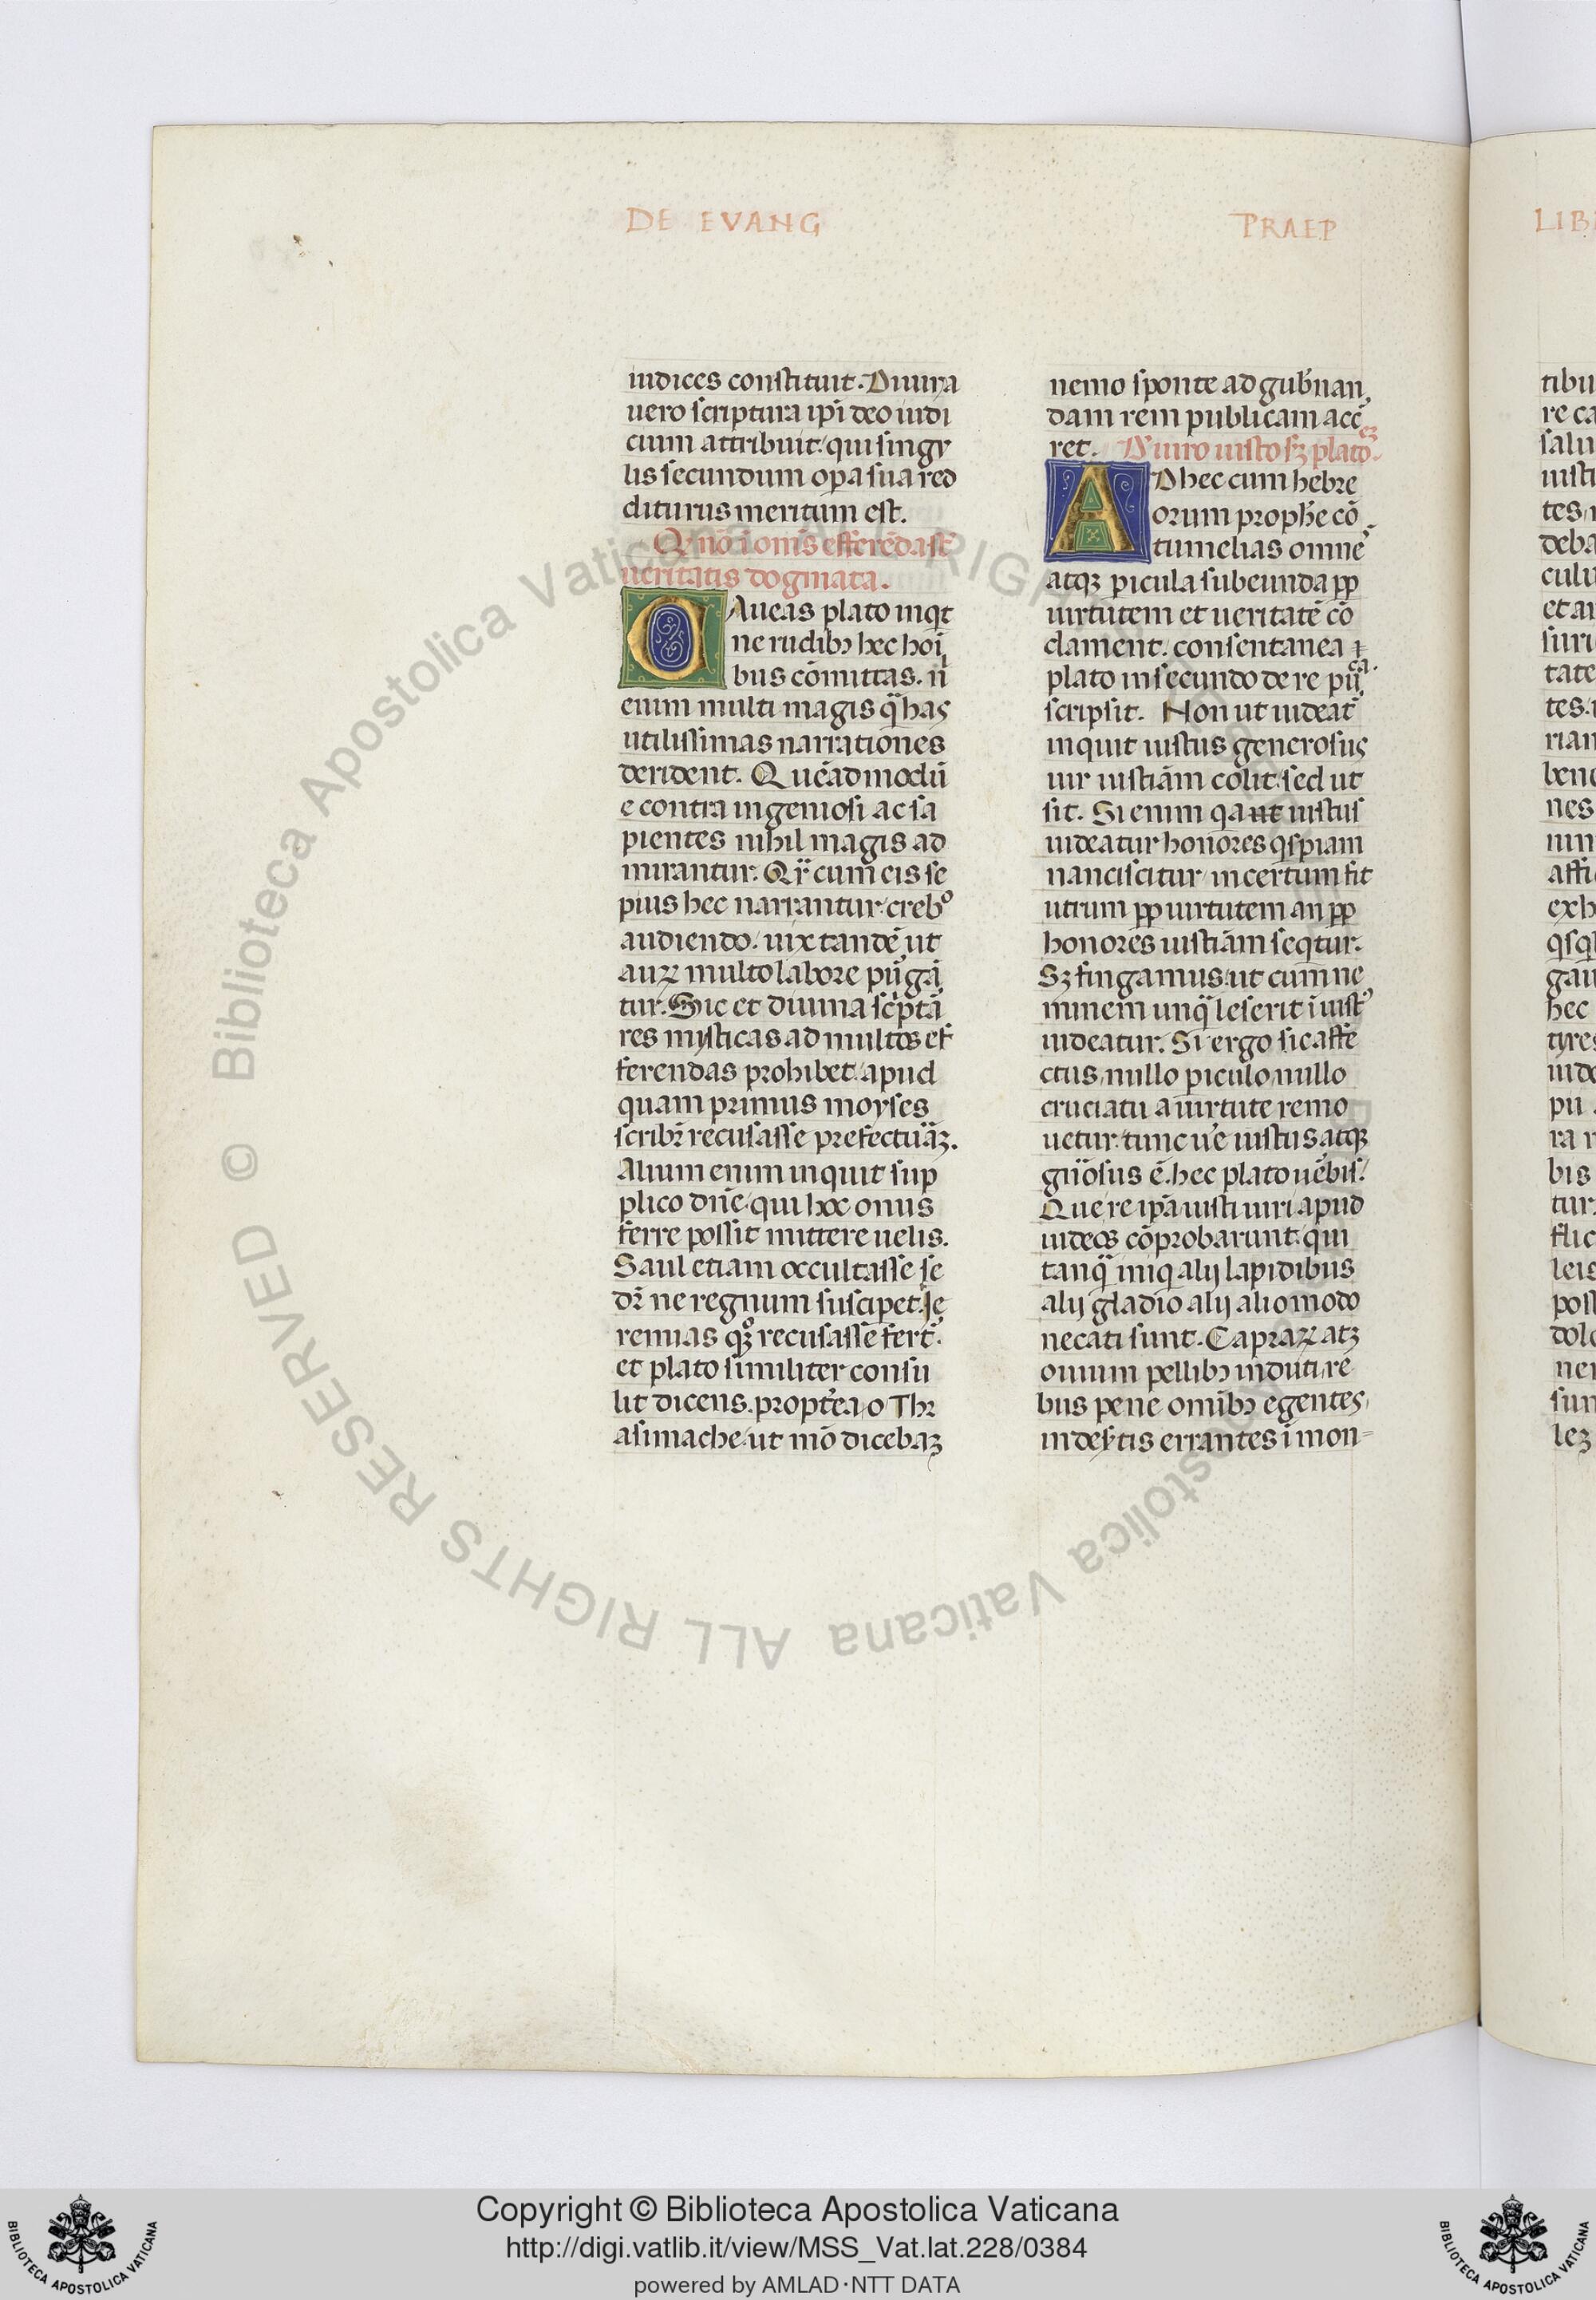 DE EVANG PRAEP
iudices constituit. Diuina
uero scriptura ipi̅ deo iudi
cium attribuit: qui singu
lis secundum opa̅ sua red
diturus meritum est.
Q nō ī omīs efferēda st̄
ueritatis dogmata.
CAueas plato inqt
ne rudibꝫ hec hoī
bus cōmittas. n̄
enim multi magis q̈ has
utilissimas narrationes
derident. Quēadmodū
e contra ingeniosi ac sa
pientes nihil magis ad
mirantur. Qr̄ cum eis se
pius hec narrantur: crebº
audiendo: uix tandē ut
auꝝ multo labore purgā
tur. Sic et diuina scptā
res mysticas ad multos ef
ferendas prohibet: apud
quam primus moyses
scribr̄ recusasse prefecturāꝫ.
Alium enim inquit sup
plico dn̄e: qui hoc onus
ferre possit mittere uelis.
Saul etiam occultasse se
dr̄ ne regnum suscipet. Je
remias qꝫ recusasse fert̄.
et plato similiter consu
lit dicens. propt̄ea o Thr
asimache: ut mō dicebaꝫ
nemo sponte ad gub̄nan
dam rem publicam acc̄
ret. D̄ uiro iusto sꝫ platōeꝫ.
ADhec cum hebre
orum prophē cō
tumelias omnē
atqꝫ picula subeunda ꝓp
uirtutem et ueritatē cō
clament. consentanea
plato in secundo de re pu̅ca.
scripsit. Non ut uideat̄
inquit iustus generosus
uir iustiām colit: sed ut
sit. Si enim qa ut iustus
uideatur honores qspiam
nanciscitur incertum fit
utrum ꝓp uirtutem an ꝓp
honores iustiām seqtur.
Sꝫ fingamus: ut cum ne
minem unq̈ leserit īiustº
uideatur. Si ergo sic affe
ctus, nullo piculo, nullo
cruciatu a uirtute remo
uetur: tunc ue̅ iustus, atqꝫ
gn̄osus ē. hec plato uēbis.
Que re ipā iusti uiri apud
iudeos cōprobarunt: qui
tanq̈ iniq alij lapidibus
alij gladio alij alio modo
necati sunt. Capraꝝ atꝫ
ouium pellibꝫ induti: re
bus pene omībꝫ egentes,
in desertis errantes ī mon=
LIB
Copyright © Biblioteca Apostolica Vaticana
http://digi.vatlib.it/view/MSS_Vat.lat.228/0384
powered by AMLAD·NTT DATA
BIBLIOTECA APOSTOLICA VATICANA
BIBLIOTECA APOSTOLICA VATICANA
© Biblioteca Apostolica Vaticana ALL RIGHTS RESERVED